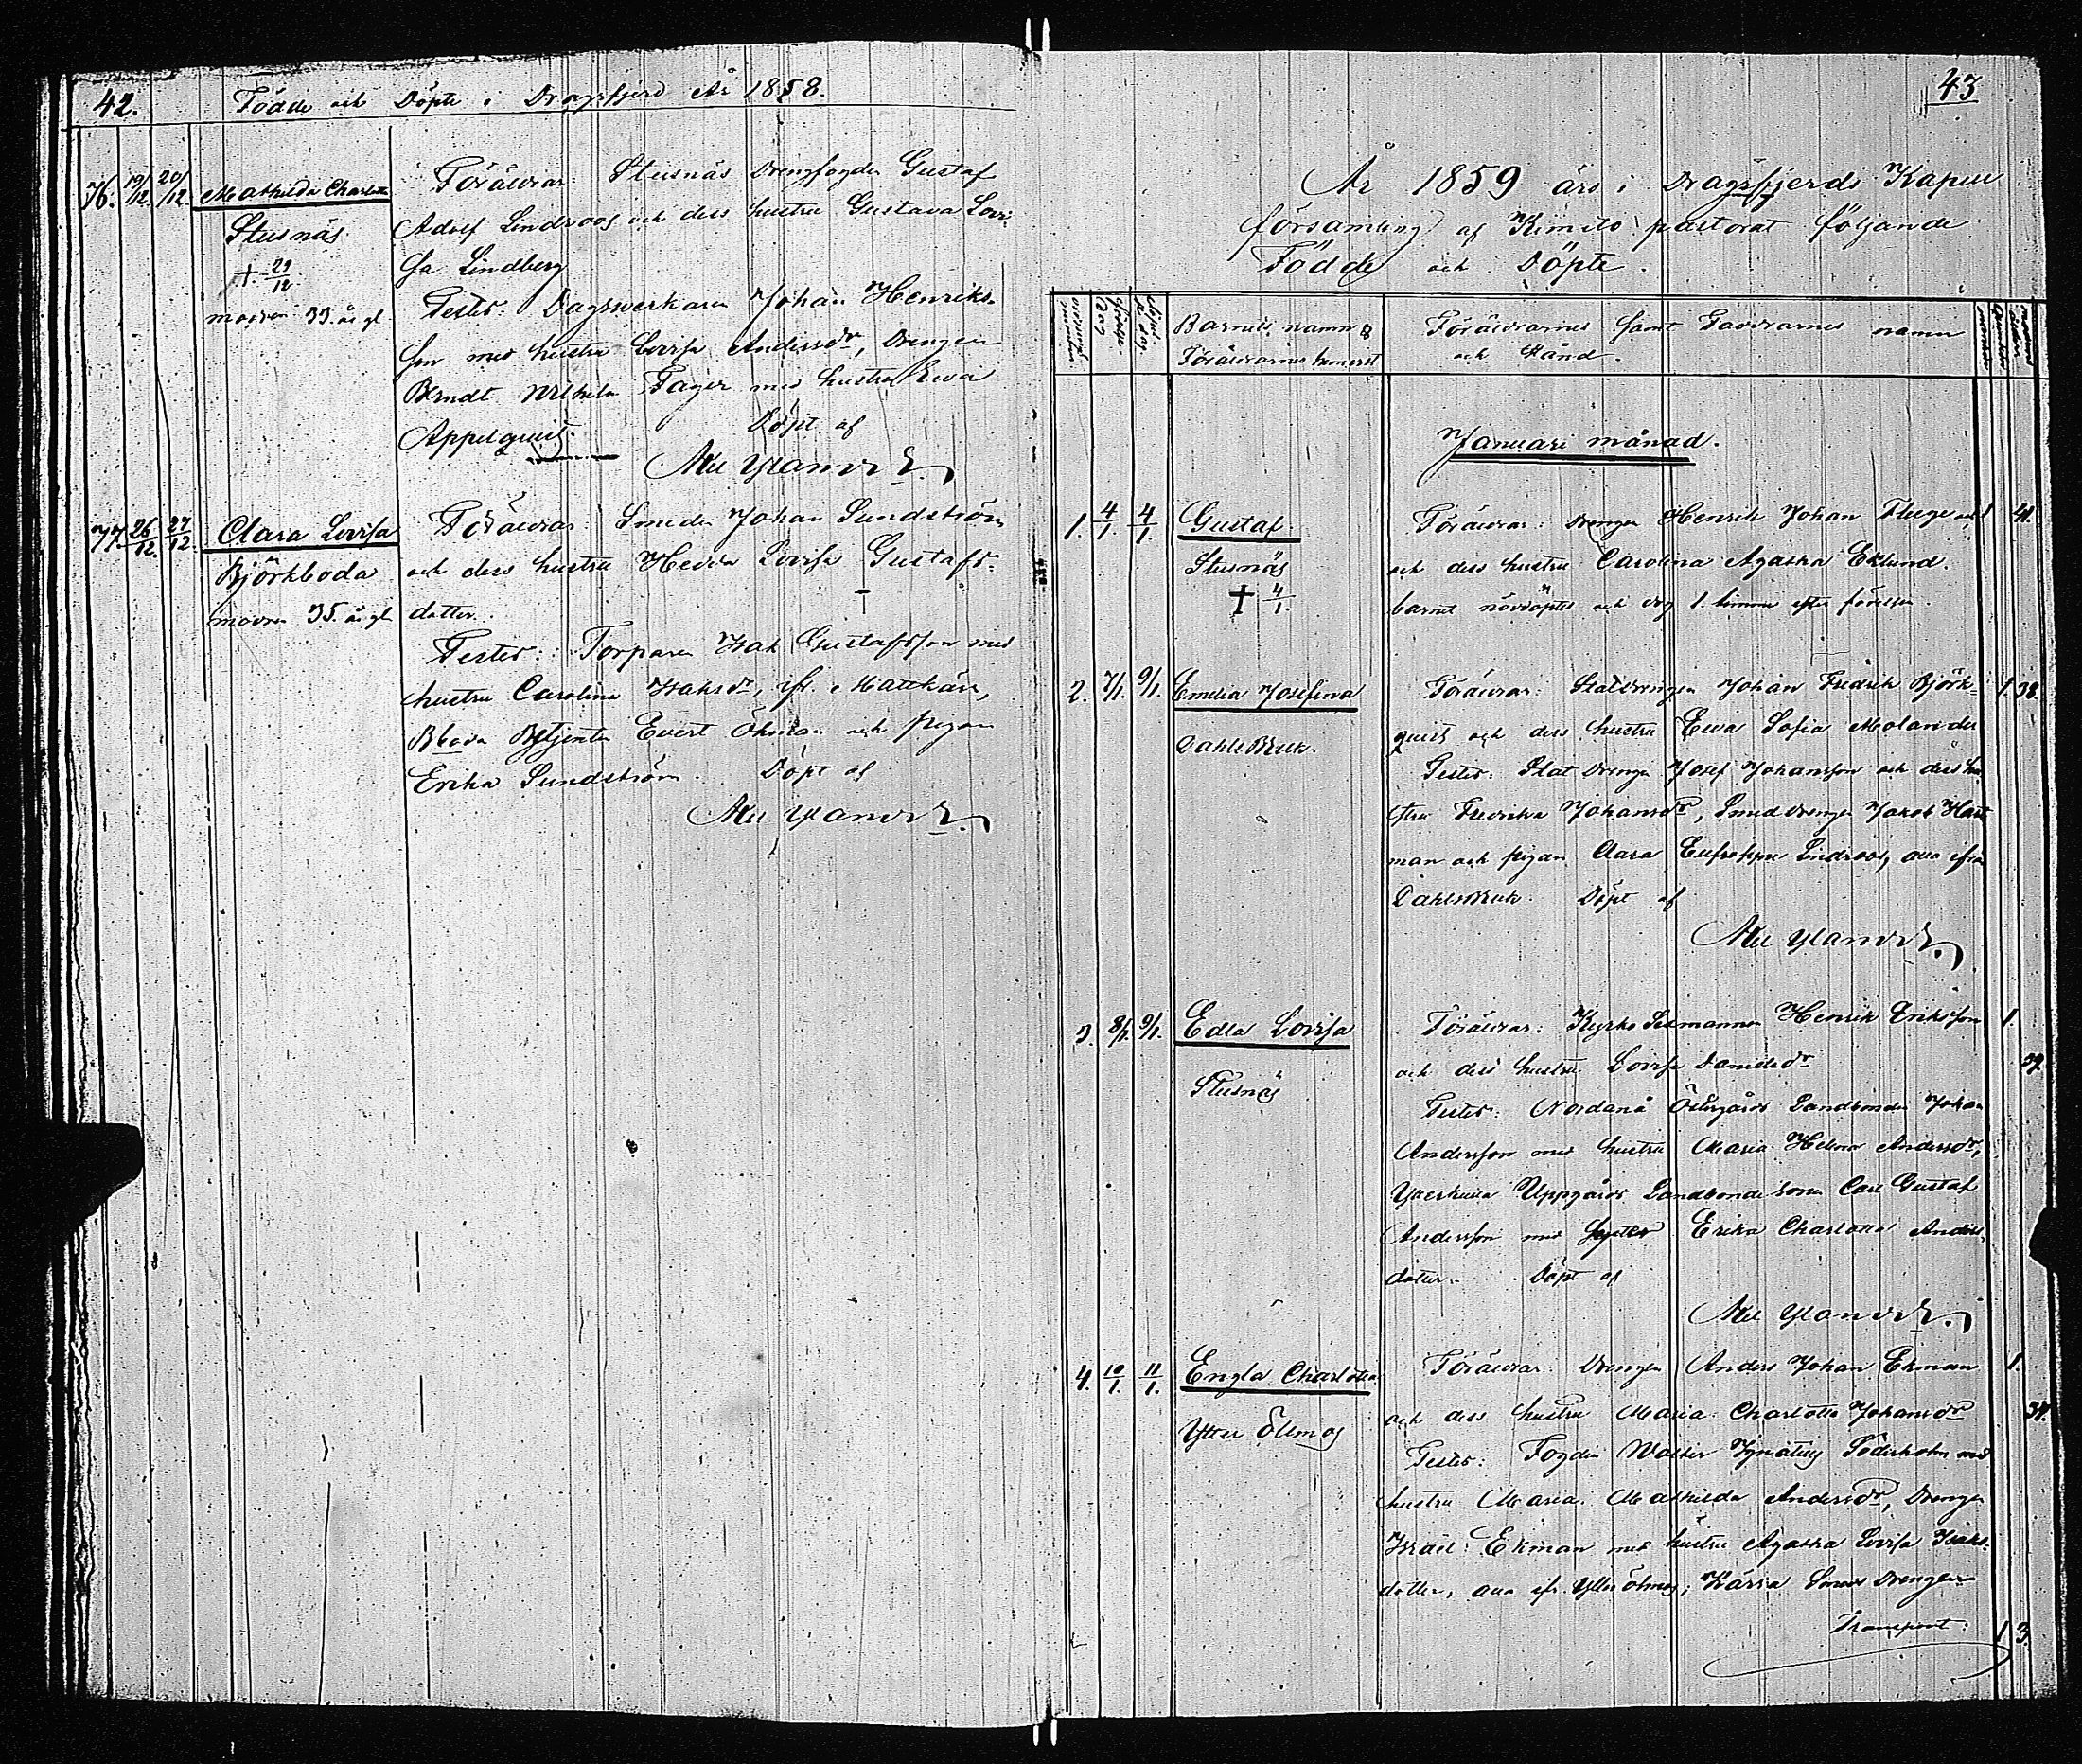 42. Födde och Döpte i Dragsfjerd År 1858.
76. 19/12. 20/12. Mathilda Charlotta
Stusnäs
† 29/12.
modren 33. år gl
Föräldrar: Stusnäs Drengfogden Gustaf
Adolf Lindroos och dess hustru Gustava Lovi-
sa Lindberg
Testes: Dagswerkaren Johan Henriks-
son med hustru Lovisa Andersdr, Drengen
Berndt Wilhelm Fager med hustru Ewa
Appelquist. Döpt af
77. 26/12. 27/12. Clara Lovisa
Björkboda
modren 35. år gl
Föräldrar: Smeden Johan Sundström
och dess hustru Hedda Lovisa Gustafs-
dotter.
Testes: Torparen Isak Gustafsson med
hustru Carolina Isaksdr, ifr.
Bboda Betjenten Evert Öhman och pigan
Erika Sundström. Döpt af
43
År 1859 års i Dragsfjerds Kapell
församling af Kimito pastorat följande
Födde och Döpte.
Barnets namn &
Föräldrarnes hemvist
Föräldrarnes samt Faddrarnes namn
och Stånd.
Januari månad.
1. 4/1. 4/1. Gustaf.
Stusnäs
† 4/1.
Föräldrar: Drengen Henrik Johan 1 41.
och dess hustru Carolina Agatha Eklund.
barnet nöddöptes och dog 1. timme efter födelsen.
2. 7/1. 9/1. Emelia Josefina
Dahls Bruk.
Föräldrar: Statdrengen Johan Fredrik Björk- 1. 38.
quist och dess hustru Ewa Sofia Molander
Testes: Stat Drengen Josef Johansson och dess hu-
stru Fredrika Johansdr, Smeddrengen Jakob Hart-
man och pigan Clara Eufrosyne Lindroos, alla ifrån
Dahlsbruk. Döpt af
3. 8/1. 9/1. Edla Lovisa
Stusnäs
Föräldrar: Kyrko Sexmannen Henrik Eriksson 1.
och dess hustru Lovisa Danielsdr 39.
Testes: Nordanå Östergårds Landbonden Johan
Andersson med hustru Maria Helena Andersdr,
Uppgårds Landbonde sonen Carl Gustaf
Andersson med syster Erika Charlotta Anders-
dotter. Döpt af
4. 10/1. 11/1. Engla Charlotta
Ytter Ölmos
Föräldrar: Drengen Anders Johan Ekman 1.
och dess hustru Maria Charlotta Johansdr 34.
Testes: Fogden Walter Ignatius Söderholm med
hustru Maria Mathilda Andersdr, Drengen
Israel Ekman med hustru Agatha Lovisa Isaks-
dotter, alla ifr. Ytter ölmos; Kärra Smeds Drengen
Transport: 1 3.